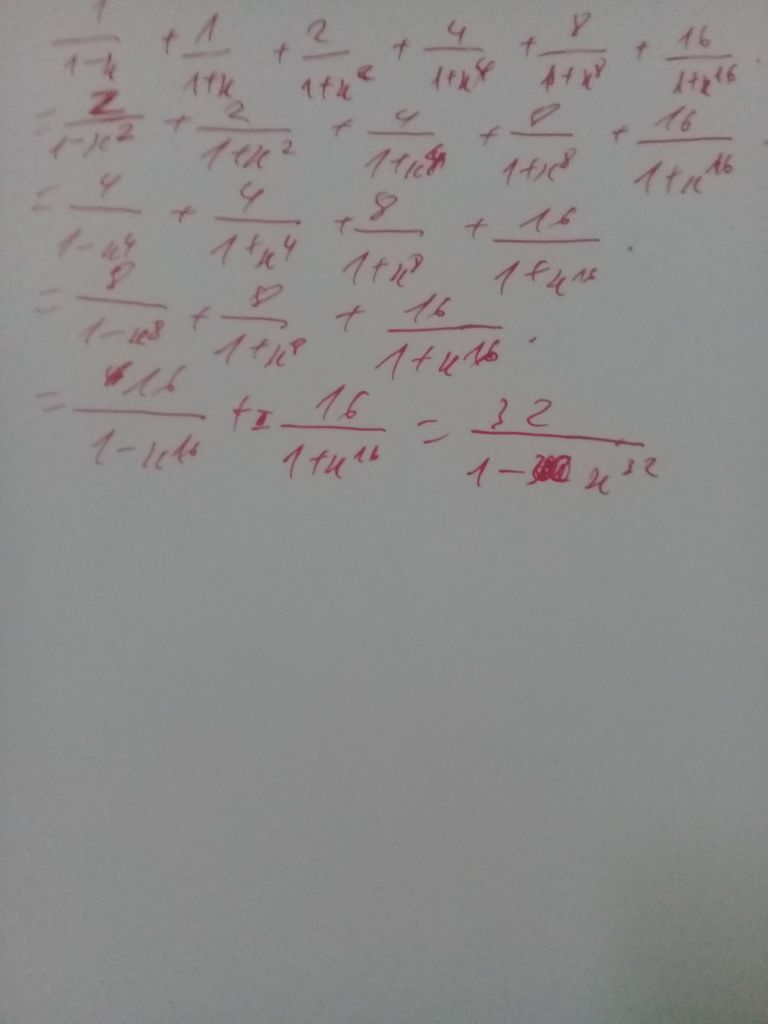 1/(1-x) + 1/(1+x) + 2/(1+x²) + 4/(1+x⁴) + 8/(1+x⁸) + 16/(1+x¹⁶).
= 2/(1-x²) + 2/(1+x²) + 4/(1+x⁴) + 8/(1+x⁸) + 16/(1+x¹⁶).
= 4/(1-x⁴) + 4/(1+x⁴) + 8/(1+x⁸) + 16/(1+x¹⁶).
= 8/(1-x⁸) + 8/(1+x⁸) + 16/(1+x¹⁶).
= 16/(1-x¹⁶) + 16/(1+x¹⁶) = 32/(1-x³²)